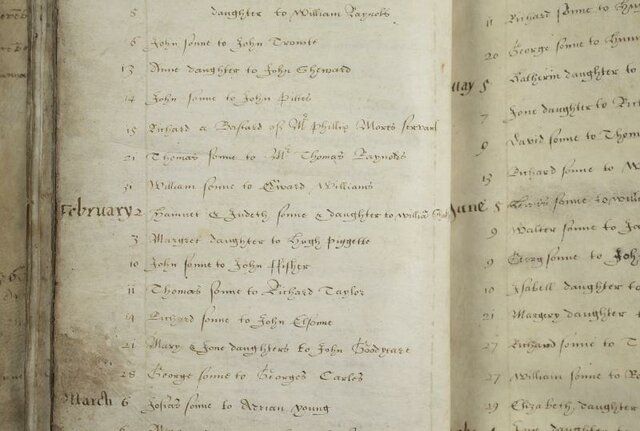 5 daughter to William Raynols
6 John sonne to John Tromte
13 Anne daughter to John Sheward
14 John sonne to John Pittes
15 Richard a Bastard of Mr Phillip Mores servant
21 Thomas sonne to Mr Thomas Raynolds
31 William sonne to Edward Williams
February 2 Hamnet & Judeth sonne & daughter to William
3 Margret daughter to Hugh Piggette
10 John sonne to John ffisher
11 Thomas sonne to Richard Taylor
14 Richard sonne to John
21 Mary & Jone daughters to John
28 George sonne to Georges Carles
March 6 Josias sonne to Adrian young
11 Richard sonne to
20 George sonne to
May 5 Katherin daughter
7 Jone daughter to Ric
9 David sonne to Thom
13 Richard sonne to W
June 5 sonne to Willi
9 Walter sonne to Ja
9 sonne to Joh
10 Isabell daughter to
21 Margery daughter t
27 Richard sonne to T
27 William sonne to Ro
29 Elizabeth daughter